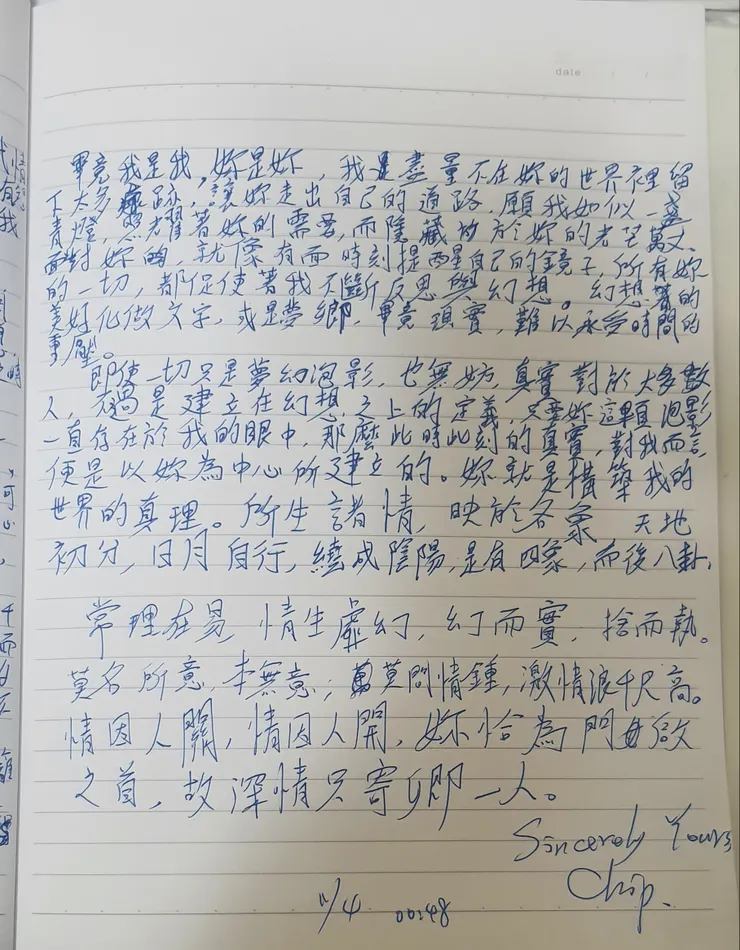 date / /
畢竟我是我,妳是妳,我是盡量不在妳的世界裡留
下太多痕跡,讓妳走出自己的道路,願我如似一盞
青燈,照耀著妳的需要,而隱藏於妳的光芒萬丈、
面對妳時,就像有面時刻提醒自己的鏡子,所有妳
的一切,都促使著我不斷反思與幻想。幻想著的
美好化做文字,或是夢鄉,畢竟現實,難以承受時間的
重壓。
即使一切只是夢幻泡影,也無妨,真實對於大多數
人,不過是建立在幻想之上的定義,只要妳這顆泡影
一直存在於我的眼中,那麼此時此刻的真實,對我而言
便是以妳為中心所建立的。妳就是構築我的
世界的真理。所生諸情,映於各象 天地
初分,日月自行,繞成陰陽,是有四象,而後八卦,
常理在易,情生虛幻,幻而實,捨而執。
莫名所意,本無意;莫問情鍾,激情浪千尺高。
情因人關,情因人開,妳恰為門啟
之首,故深情只寄卿一人。
Sincerely Yours
Chip.
11/4 00:48